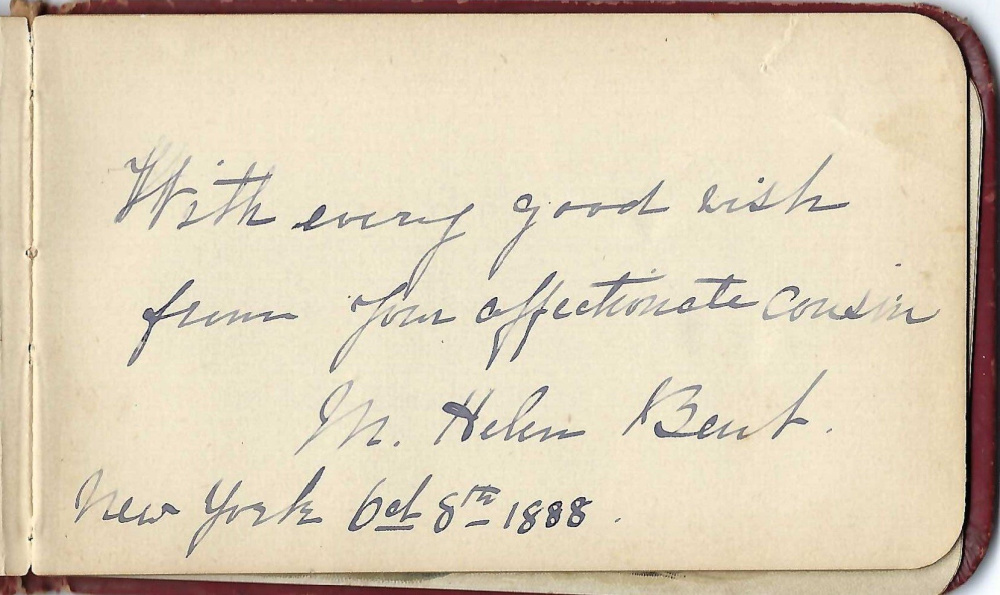 With every good wish
from your affectionate cousin
M. Helen Bent.
New York Oct 8th 1888.